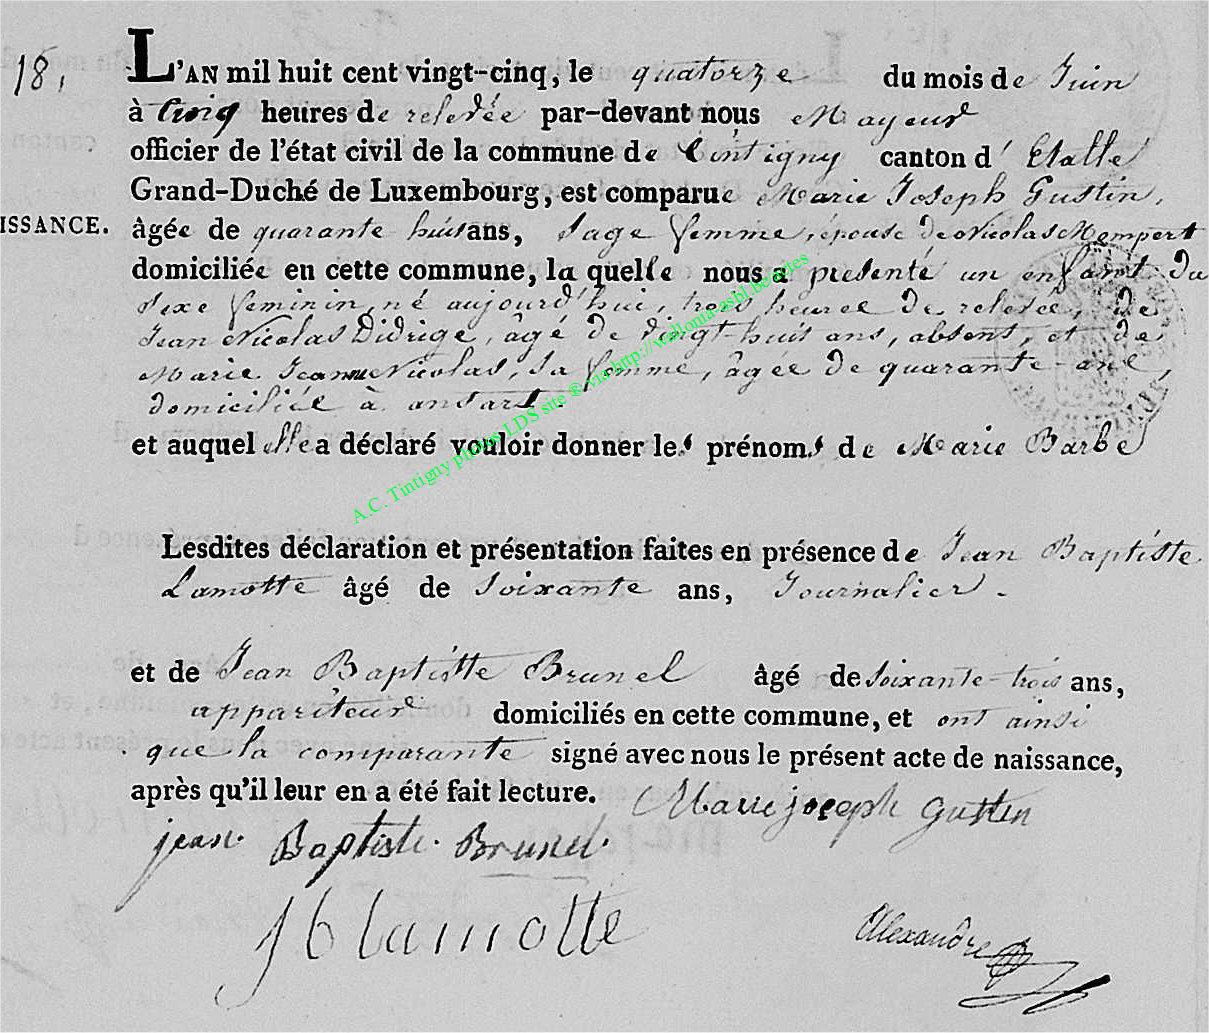 18,
L'AN mil huit cent vingt-cinq, le quatorze du mois de Juin
à cinq heures de relevée par-devant nous Mayeur
officier de l'état civil de la commune de Tintigny canton d' Etalle
Grand-Duché de Luxembourg, est comparue Marie Joseph Gustin,
ISSANCE.
âgée de quarante huit ans, Sage femme, épouse de Nicolas Mempert
domiciliée en cette commune, la quelle nous a présenté un enfant du
Sexe feminin, né aujourd'hui, trois heures de relevée, de
Jean Nicolas Didrige, âgé de vingt-huit ans, absent, et de
Marie Jeanne Nicolas, sa femme, âgée de quarante ans,
domiciliée à ansart.
et auquel elle a déclaré vouloir donner les prénoms de Marie Barbe
A.C. Tintigny photos LDS site ® via http://wallonia-asbl.be/actes
Lesdites déclaration et présentation faites en présence de Jean Baptiste
Lamotte âgé de Soixante ans, Journalier.
et de Jean Baptiste Brunel âgé de soixante-trois ans,
appariteur domiciliés en cette commune, et ont ainsi
que la comparante signé avec nous le présent acte de naissance,
après qu'il leur en a été fait lecture. Marie joseph gustin
jean Baptiste Brunel
J b lamotte
Alexandre